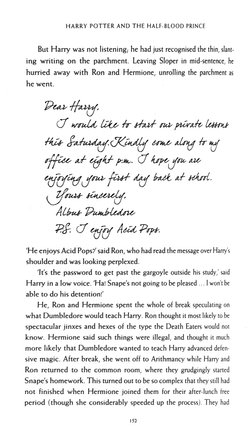 HARRY POTTER AND THE HALF-BLOOD PRINCE
But Harry was not listening; he had just recognised the thin, slant-
ing writing on the parchment. Leaving Sloper in mid-sentence, he
hurried away with Ron and Hermione, unrolling the parchment as
he went.
Dear Harry,
I would like to start our private lessons
this Saturday. Kindly come along to my
office at eight p.m. I hope you are
enjoying your first day back at school.
Yours sincerely,
Albus Dumbledore
P.S. I enjoy Acid Pops.
'He enjoys Acid Pops?' said Ron, who had read the message over Harry's
shoulder and was looking perplexed.
'It's the password to get past the gargoyle outside his study,' said
Harry in a low voice. 'Ha! Snape's not going to be pleased ... I won't be
able to do his detention!'
He, Ron and Hermione spent the whole of break speculating on
what Dumbledore would teach Harry. Ron thought it most likely to be
spectacular jinxes and hexes of the type the Death Eaters would not
know. Hermione said such things were illegal, and thought it much
more likely that Dumbledore wanted to teach Harry advanced defen-
sive magic. After break, she went off to Arithmancy while Harry and
Ron returned to the common room, where they grudgingly started
Snape's homework. This turned out to be so complex that they still had
not finished when Hermione joined them for their after-lunch free
period (though she considerably speeded up the process). They had
172